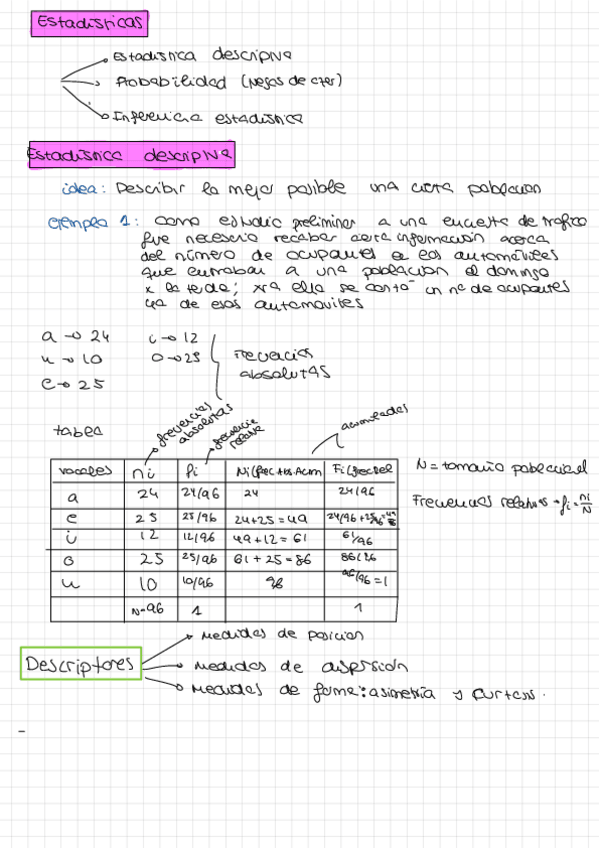 Estadísticas
Estadística descriptiva
Probabilidad (Negas de
Inferencia estadística
Estadística descriptiva
idea: Describir lo mejor posible una cierta población
ejemplo 1: Como estudio preliminar a una encuesta de tráfico
fue necesario recabar cierta información acerca
del número de ocupantes e los automóviles
que entraban a una población el domingo
x la tarde; xra ello se contó un nº de ocupantes
de esos automóviles
a → 24 i → 12
u → 10 o → 25 Frecuencias
absolutas
e → 25
tabla
frecuencias absolutas
frecuencia relativa
acumuladas
vocales ni fi Ni(frec abs. Acum Fi(frec Rel
a 24 24/96 24 24/96
e 25 25/96 24+25=49 24/96 + 25/96 =
i 12 12/96 49+12=61 61/96
o 25 25/96 61+25=86 86/96
u 10 10/96 96 96/96 = 1
N=96 1 1
N = tamaño poblacional
Frecuencias relativas → fi = ni/N
Descriptores
Medidas de posición
Medidas de dispersión
Medidas de forma: asimetría y curtosis.
-